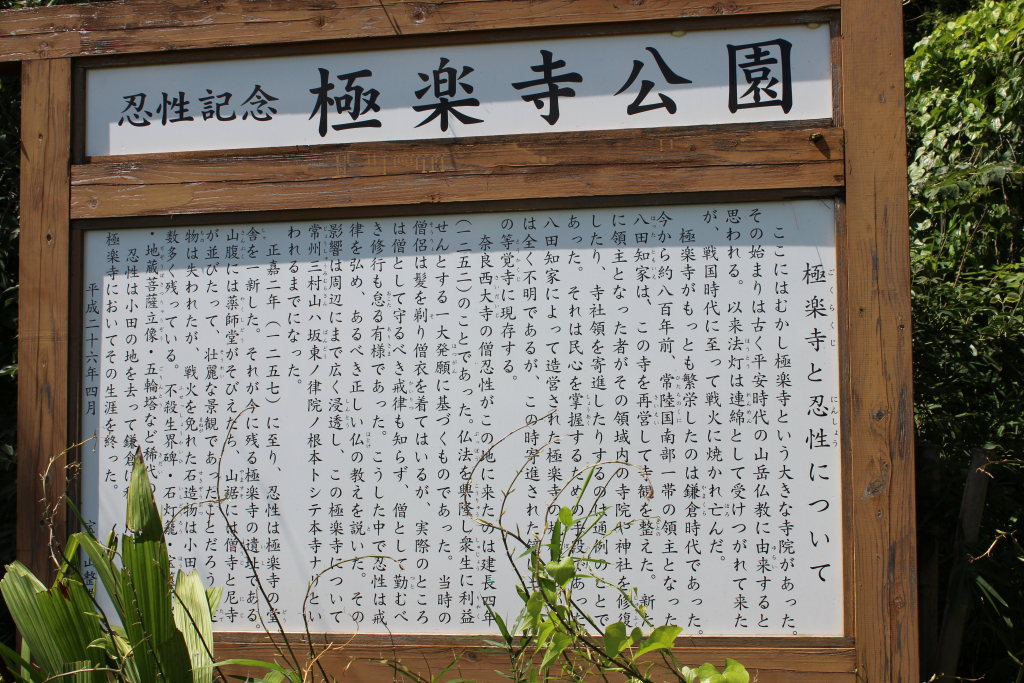 忍性記念 極楽寺公園
極楽寺と忍性について
ここにはむかし極楽寺という大きな寺院があった。
その始まりは古く平安時代の山岳仏教に由来すると
思われる。以来法灯は連綿として受けつがれて来た
が、戦国時代に至って戦火に焼かれ亡んだ。
極楽寺がもっとも繁栄したのは鎌倉時代であった。
今から約八百年前、常陸国南部一帯の領主となった
八田知家は、この寺を再営して寺観を整えた。新た
に領主となった者がその領域内の寺院や神社を修復
したり、寺社領を寄進したりするのは通例のことで
あった。それは民心を掌握するための手段であった
八田知家によって造営された極楽寺の
は全く不明であるが、この時寄進された
の等覚寺に現存する。
奈良西大寺の僧忍性がこの地に来たのは建長四年
(一二五二)のことであった。仏法を興隆し衆生に利益
せんとする一大発願に基づくものであった。当時の
僧侶は髪を剃り僧衣を着てはいるが、実際のところ
は僧として守るべき戒律も知らず、僧として勤むべ
き修行も怠る有様であった。こうした中で忍性は戒
律を弘め、あるべき正しい仏の教えを説いた。その
影響は周辺にまで広く浸透し、この極楽寺について
常州三村山ハ坂東ノ律院ノ根本トシテ本寺ナリとい
われるまでになった。
正嘉二年(一二五七)に至り、忍性は極楽寺の堂
舎を一新した。それが今に残る極楽寺の遺址である。
山腹には薬師堂がそびえたち、山裾には僧寺と尼寺
が並びたって、壮麗な景観であったことだろう。
物は失われたが、戦火を免れた石造物は小田
数多く残っている。不殺生界碑・石灯籠・
・地蔵菩薩立像・五輪塔など稀
忍性は小田の地を去って鎌倉
極楽寺においてその生涯を終った。
平成二十六年四月